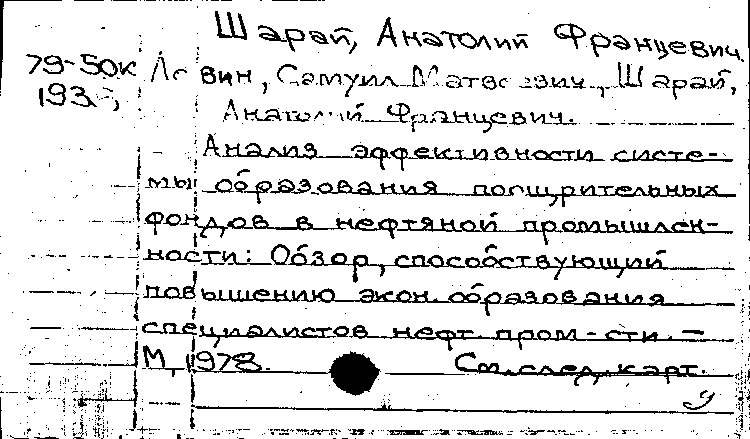 Шарай, Анатолий Францевич.
79-50к Левин, Самуил Матвеевич, Шарай,
Анатолий Францевич.
Анализ эффективности систе-
мы образования поощрительных
фондов в нефтяной промышлен-
ности: Обзор, способствующий
повышению экон. образования
специалистов нефт. пром-сти. –
М, 1978. См. след. карт.